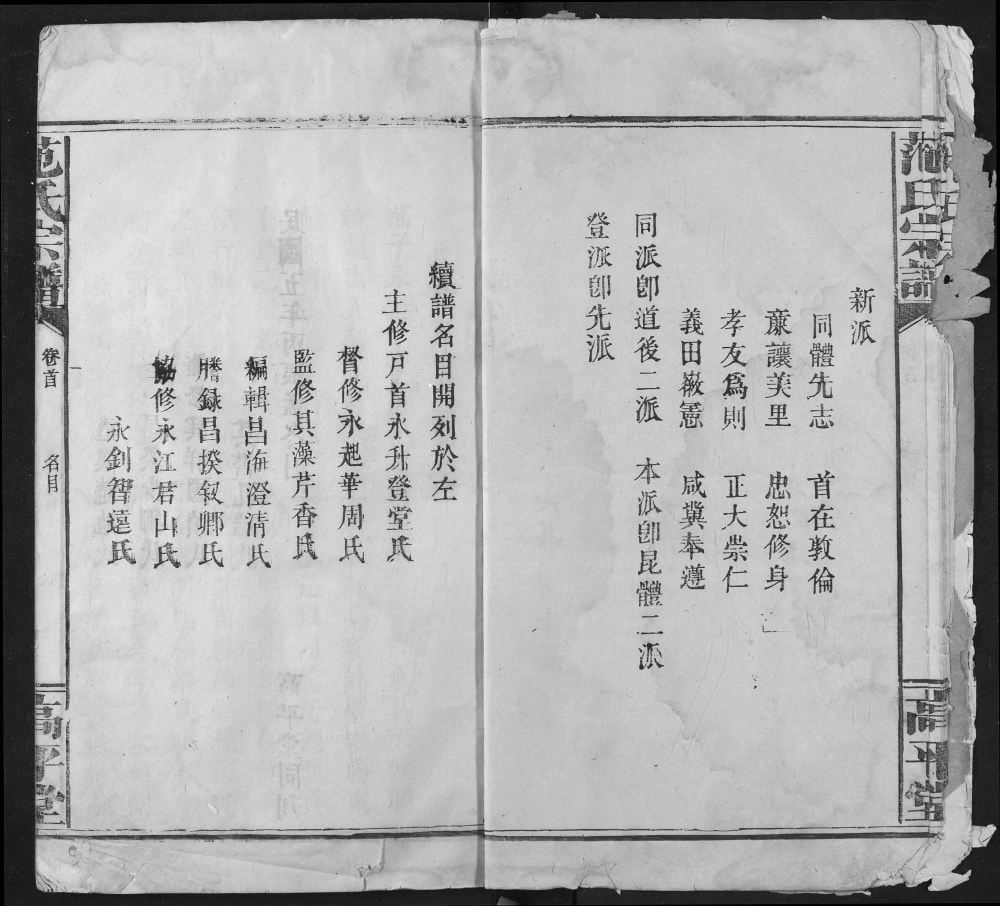 范氏宗譜
高平堂
新派
同體先志 首在敦倫
廉讓美里 忠恕修身
孝友爲則 正大崇仁
義田嶽憲 咸冀奉遵
同派卽道後二派 本派卽昆體二派
登派卽先派
續譜名目開列於左
主修戸首永升登堂氏
督修永起華周氏
監修其藻芹香氏
編輯昌海澄清氏
謄録昌揆叙卿氏
協修永江君山氏
永釗智遠氏
范氏宗譜
卷首 名目
高平堂